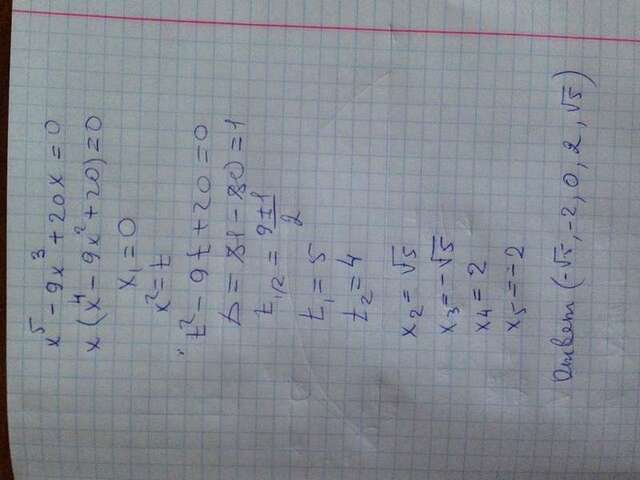 x⁵ - 9x³ + 20x = 0
x(x⁴ - 9x² + 20) = 0
x₁ = 0
x² = t
t² - 9t + 20 = 0
D = 81 - 80 = 1
t₁,₂ = (9 ± 1)/2
t₁ = 5
t₂ = 4
x₂ = √5
x₃ = -√5
x₄ = 2
x₅ = -2
Ответ (-√5, -2, 0, 2, √5)